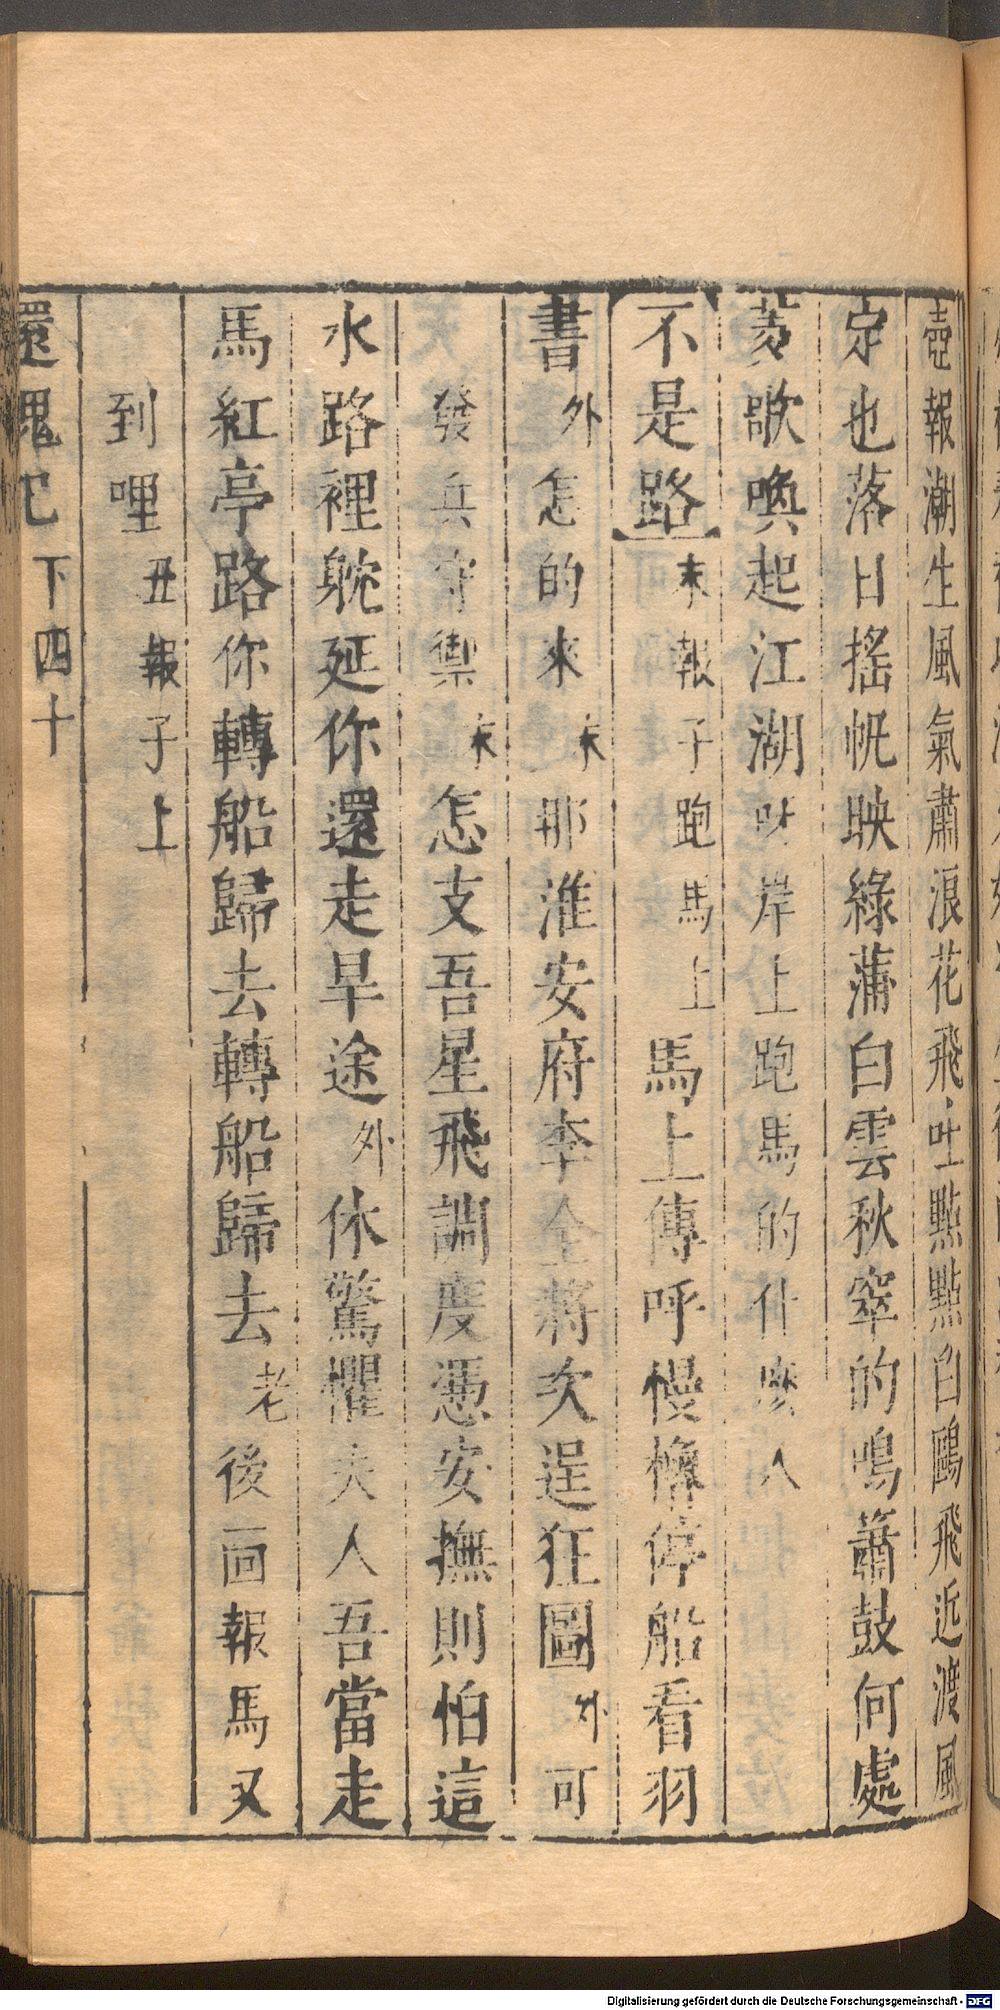 壺報潮生風氣肅浪花飛吐點點白鷗飛近渡風
定也落日搖帆映綠蒲白雲秋窣的鳴簫鼓何處
菱歌喚起江湖呀岸上跑馬的什麽人
不是路末報子跑馬上馬上傳呼慢櫓停船看羽
書外怎的來末那淮安府李全將次逞狂圖外可
發兵守禦末怎支吾星飛調度憑安撫則怕這
水路裡躭延你還走旱途外休驚懼夫人吾當走
馬紅亭路你轉船歸去轉船歸去老後面報馬又
到哩丑報子上
還魂記 下四十
Digitalisierung gefördert durch die Deutsche Forschungsgemeinschaft - DFG